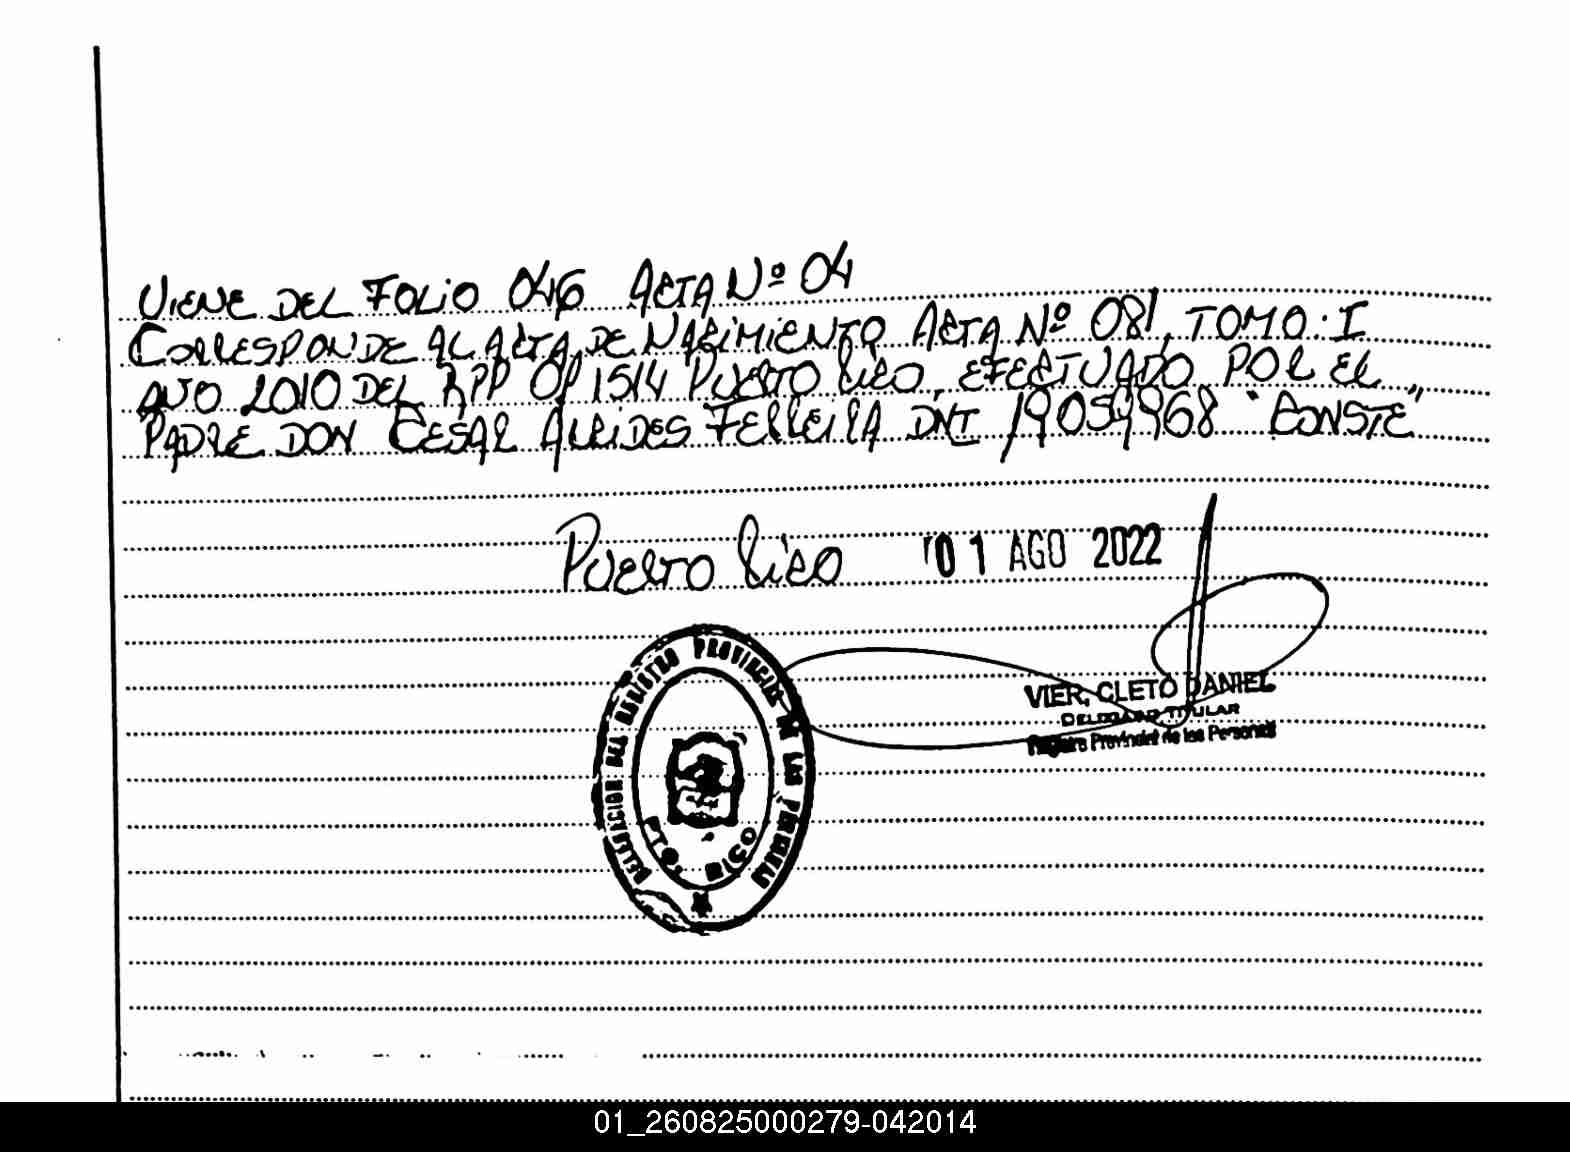 VIENE DEL FOLIO 046 ACTA Nº 04
CORRESPONDE AL ACTA DE NACIMIENTO ACTA Nº 081, TOMO: I
AÑO 2010 DEL RPP OP 1514 PUERTO RICO, EFECTUADO POR EL
PADRE DON CESAR ALCIDES FERREIRA DNI 19054968 "CONSTE"
PUERTO RICO 01 AGO 2022
DELEGACION DEL REGISTRO PROVINCIAL DE LAS PERSONAS
PTO. RICO
VIER, CLETO DANIEL
DELEGADO TITULAR
Registro Provincial de las Personas
01_260825000279-042014